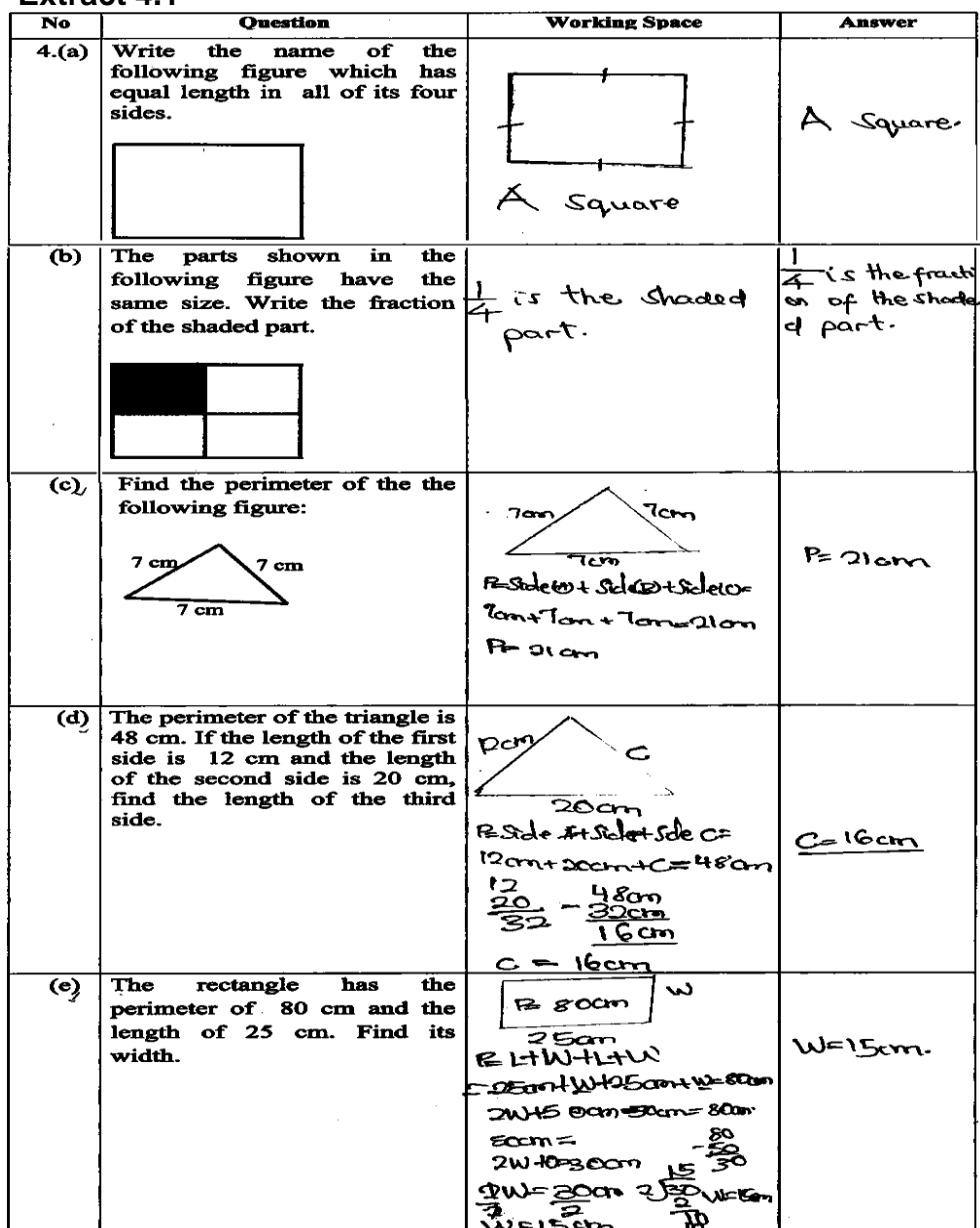 Extract 4.1
No Question Working Space Answer
4.(a) Write the name of the
following figure which has
equal length in all of its four
sides.
A Square
A Square.
(b) The parts shown in the
following figure have the
same size. Write the fraction
of the shaded part.
1/4 is the shaded
part.
1/4 is the fracti
on of the shade
d part.
(c) Find the perimeter of the the
following figure:
7 cm 7 cm
7 cm
7cm 7cm
7cm
7cm+7cm+7cm=21cm
P= 21cm
P= 21cm
(d) The perimeter of the triangle is
48 cm. If the length of the first
side is 12 cm and the length
of the second side is 20 cm,
find the length of the third
side.
12cm C
20cm
12cm+20cm+C=48cm
12
20
32
- 48cm
32cm
16cm
C = 16cm
C=16cm
(e) The rectangle has the
perimeter of 80 cm and the
length of 25 cm. Find its
width.
P= 80cm W
25cm
P= L+W+L+W
=25cm+W+25cm+W=80cm
80
-50
30
W=15cm
W=15cm.